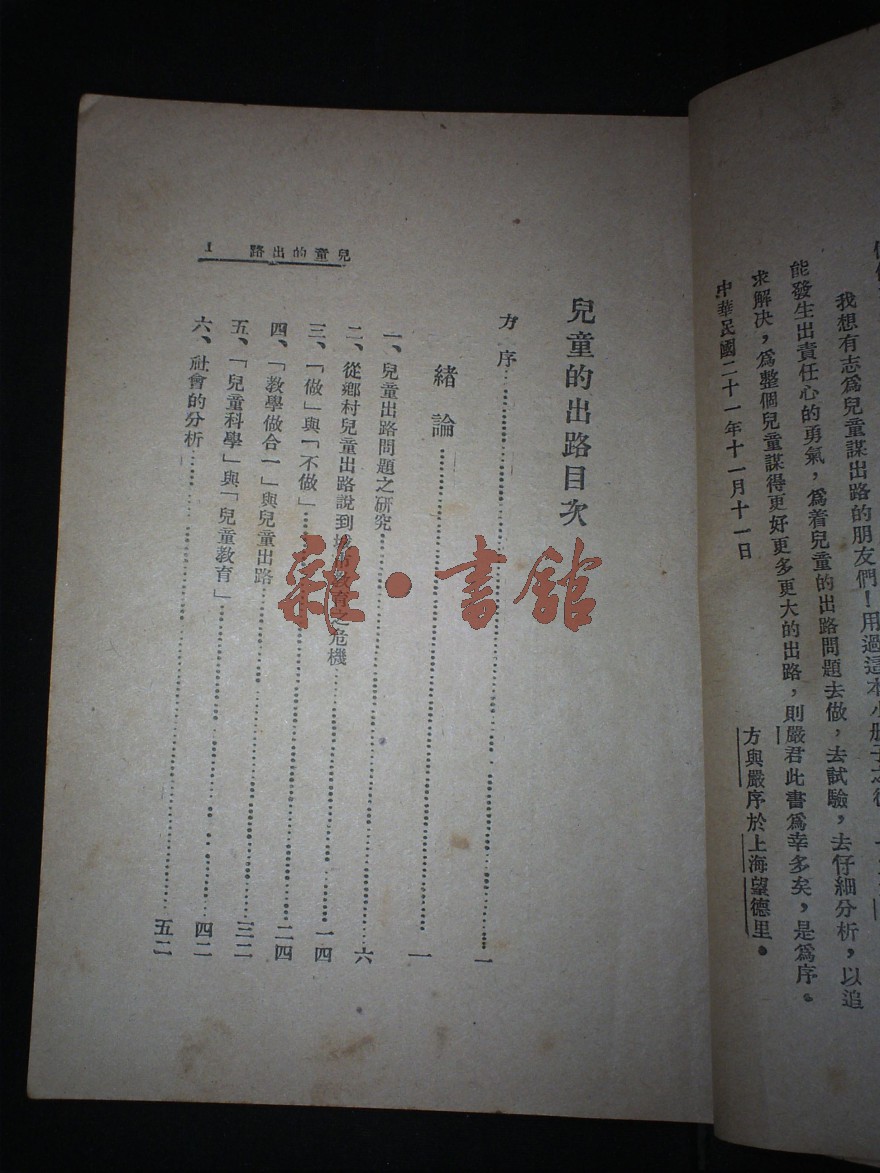 我想有志爲兒童謀出路的朋友們！用過這本小册子之後
能發生出責任心的勇氣，爲着兒童的出路問題去做，去試驗，去仔細分析，以追
求解决，爲整個兒童謀得更好更多更大的出路，則嚴君此書爲幸多矣，是爲序。
中華民國二十一年十一月十一日
方與嚴序於上海望德里。
兒童的出路 1
兒童的出路目次
方序……一
緒論……一
一、兒童出路問題之研究……六
二、從鄉村兒童出路說到城市教育之危機……一四
三、「做」與「不做」……二四
四、「教學做合一」與兒童出路……三二
五、「兒童科學」與「兒童教育」……四二
六、社會的分析……五二
雜·書館